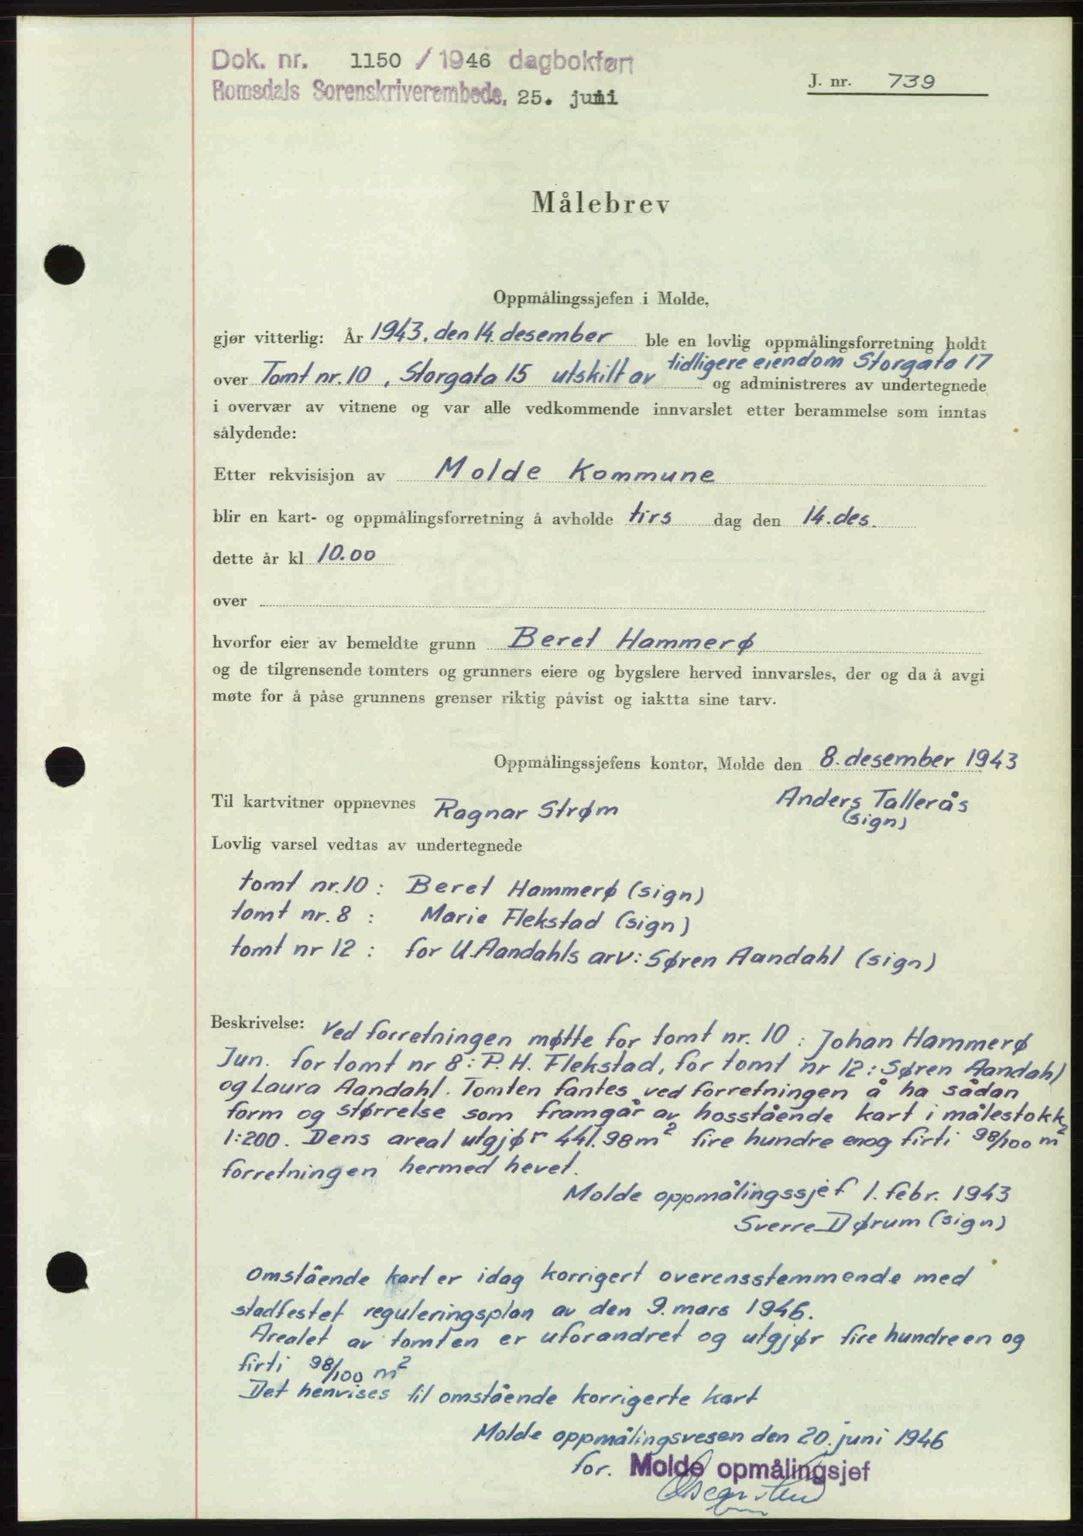 Dok. nr. 1150 / 1946 dagbokført
Romsdals Sorenskriverembede, 25. juni
J. nr. 739
Målebrev
Oppmålingssjefen i Molde,
gjør vitterlig: År 1943, den 14. desember ble en lovlig oppmålingsforretning holdt
over Tomt nr. 10, Storgata 15 utskilt av tidligere eiendom Storgata 17 og administreres av undertegnede
i overvær av vitnene og var alle vedkommende innvarslet etter berammelse som inntas
sålydende:
Etter rekvisisjon av Molde Kommune
blir en kart- og oppmålingsforretning å avholde tirs dag den 14. des.
dette år kl 10.00
over
hvorfor eier av bemeldte grunn Beret Hammerø
og de tilgrensende tomters og grunners eiere og bygslere herved innvarsles, der og da å avgi
møte for å påse grunnens grenser riktig påvist og iaktta sine tarv.
Oppmålingssjefens kontor, Molde den 8. desember 1943
Til kartvitner oppnevnes Ragnar Strøm Anders Tallerås
(sign)
Lovlig varsel vedtas av undertegnede
tomt nr. 10 : Beret Hammerø (sign)
tomt nr. 8 : Marie Flekstad (sign)
tomt nr 12 : for U. Aandahls arv: Søren Aandahl (sign)
Beskrivelse: Ved forretningen møtte for tomt nr. 10 : Johan Hammerø
Jun. for tomt nr 8 : P. H. Flekstad, for tomt nr 12 : Søren Aandahl
og Laura Aandahl. Tomten fantes ved forretningen å ha sådan
form og størrelse som framgår av hosstående kart i målestokk
1:200. Dens areal utgjør 441.98 m² fire hundre enog firti 98/100 m²
forretningen hermed hevet.
Molde oppmålingssjef 1. febr. 1943
Sverre Dørum (sign)
Omstående kart er idag korrigert overensstemmende med
stadfestet reguleringsplan av den 9. mars 1946.
Arealet av tomten er uforandret og utgjør fire hundre en og
firti 98/100 m²
Det henvises til omstående korrigerte kart
Molde oppmålingsvesen den 20. juni 1946
for. Molde oppmålingsjef